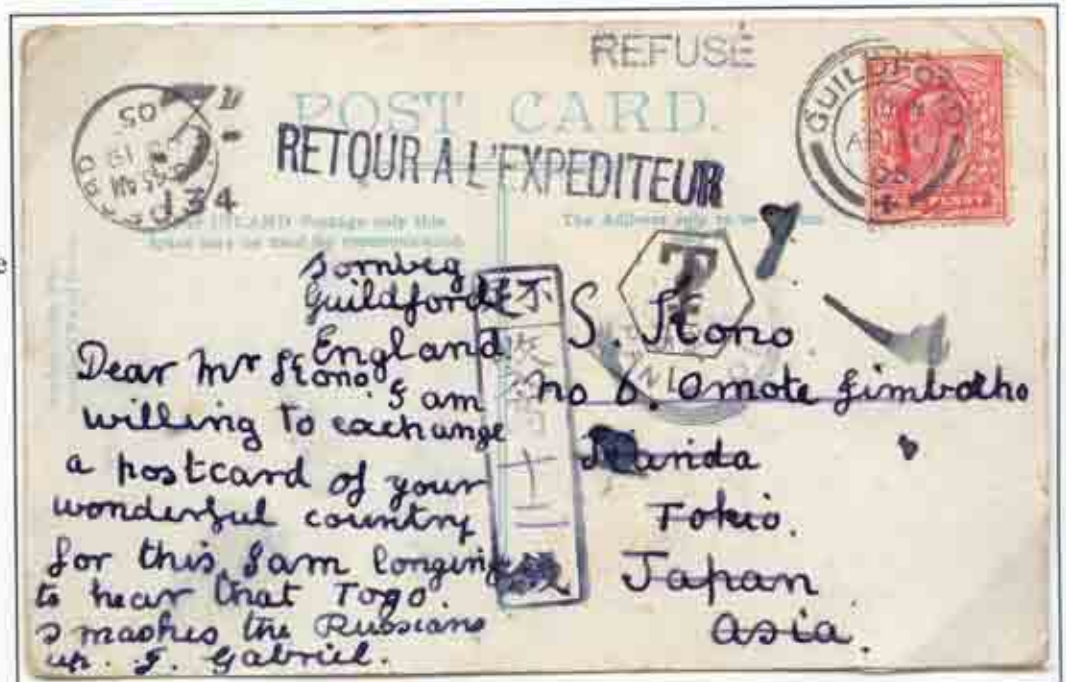 REFUSÉ
POST CARD.
RETOUR A L'EXPEDITEUR
GUILDFORD
05
134
INLAND Postage only this
The Address only to be
T
Guildford
England.
Dear Mr Kono
I am
willing to exchange
a postcard of your
wonderful country
for this I am longing
to hear that Togo.
smashes the Russians
up. F. Gabriel.
不
十二
銭
S. Kono
no 6. Omote Jimbocho
Kanda
Tokio.
Japan
Asia.